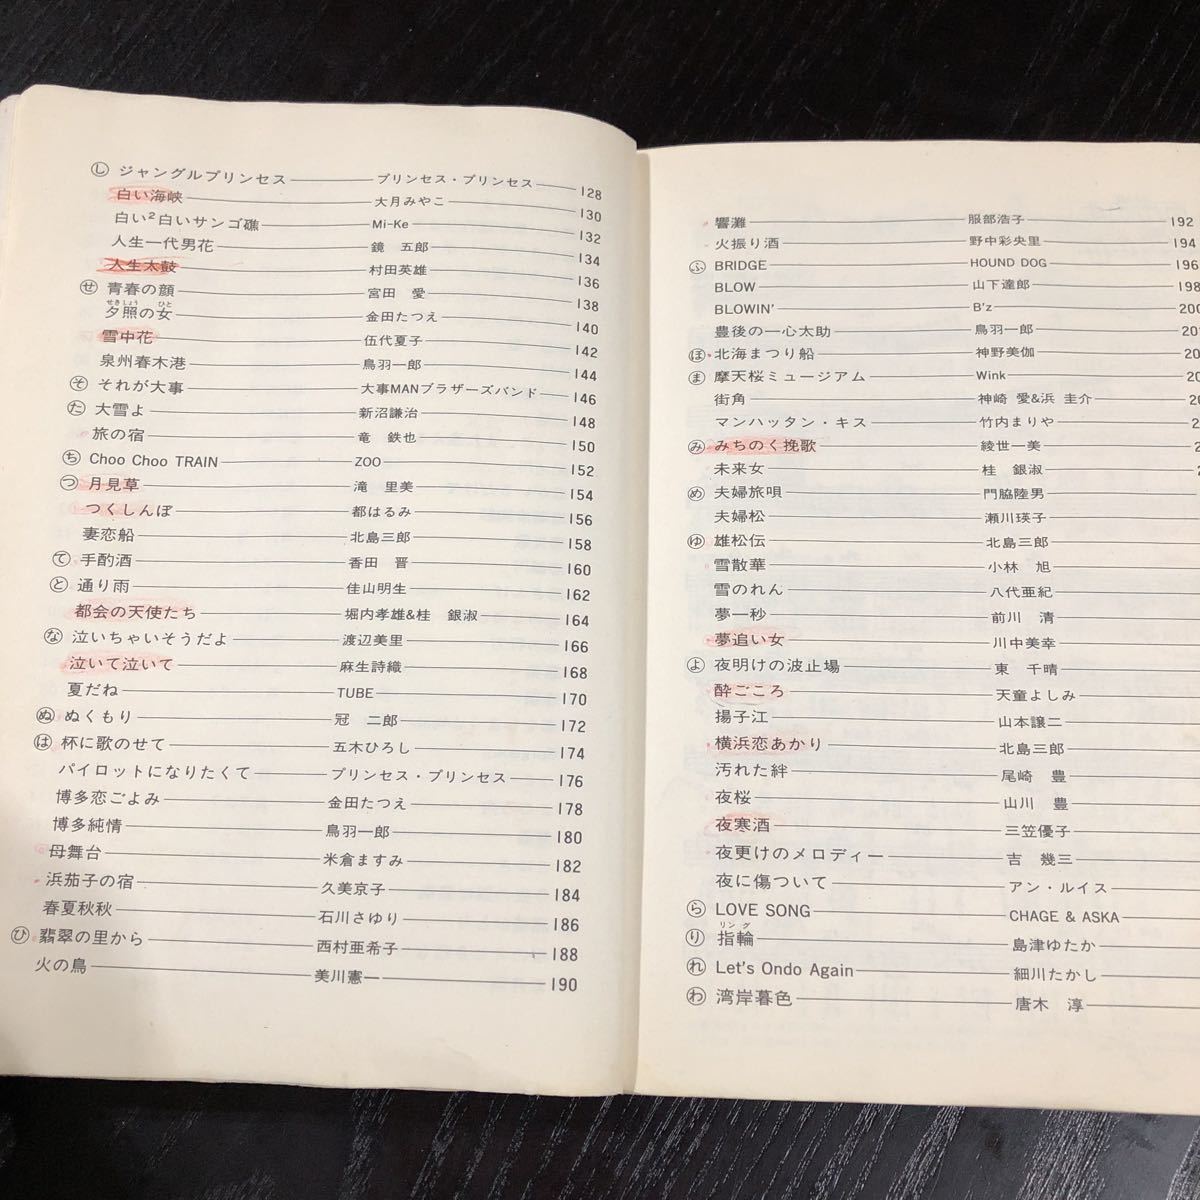 し ジャングルプリンセス プリンセス・プリンセス 128
白い海峡 大月みやこ 130
白い²白いサンゴ礁 Mi-Ke 132
人生一代男花 鏡 五郎 134
人生太鼓 村田英雄 136
せ 青春の顔 宮田 愛 138
夕照の女 金田たつえ 140
せきしょう ひと
雪中花 伍代夏子 142
泉州春木港 鳥羽一郎 144
そ それが大事 大事MANブラザーズバンド 146
た 大雪よ 新沼謙治 148
旅の宿 竜 鉄也 150
ち Choo Choo TRAIN ZOO 152
つ 月見草 滝 里美 154
つくしんぼ 都はるみ 156
妻恋船 北島三郎 158
て 手酌酒 香田 晋 160
と 通り雨 佳山明生 162
都会の天使たち 堀内孝雄&桂 銀淑 164
な 泣いちゃいそうだよ 渡辺美里 166
泣いて泣いて 麻生詩織 168
夏だね TUBE 170
ぬ ぬくもり 冠 二郎 172
は 杯に歌のせて 五木ひろし 174
パイロットになりたくて プリンセス・プリンセス 176
博多恋ごよみ 金田たつえ 178
博多純情 鳥羽一郎 180
母舞台 米倉ますみ 182
浜茄子の宿 久美京子 184
春夏秋秋 石川さゆり 186
ひ 翡翠の里から 西村亜希子 188
火の鳥 美川憲一 190
響灘 服部浩子 192
火振り酒 野中彩央里 194
ふ BRIDGE HOUND DOG 196
BLOW 山下達郎 198
BLOWIN' B'z 200
豊後の一心太助 鳥羽一郎
ほ 北海まつり船 神野美伽
ま 摩天楼ミュージアム Wink
街角 神崎 愛&浜 圭介
マンハッタン・キス 竹内まりや
み みちのく挽歌 綾世一美
未来女 桂 銀淑
め 夫婦旅唄 門脇陸男
夫婦松 瀬川瑛子
ゆ 雄松伝 北島三郎
雪散華 小林 旭
雪のれん 八代亜紀
夢一秒 前川 清
夢追い女 川中美幸
よ 夜明けの波止場 東 千晴
酔ごころ 天童よしみ
揚子江 山本譲二
横浜恋あかり 北島三郎
汚れた絆 尾崎 豊
夜桜 山川 豊
夜寒酒 三笠優子
夜更けのメロディー 吉 幾三
夜に傷ついて アン・ルイス
ら LOVE SONG CHAGE & ASKA
り 指輪 島津ゆたか
リング
れ Let's Ondo Again 細川たかし
わ 湾岸暮色 唐木 淳